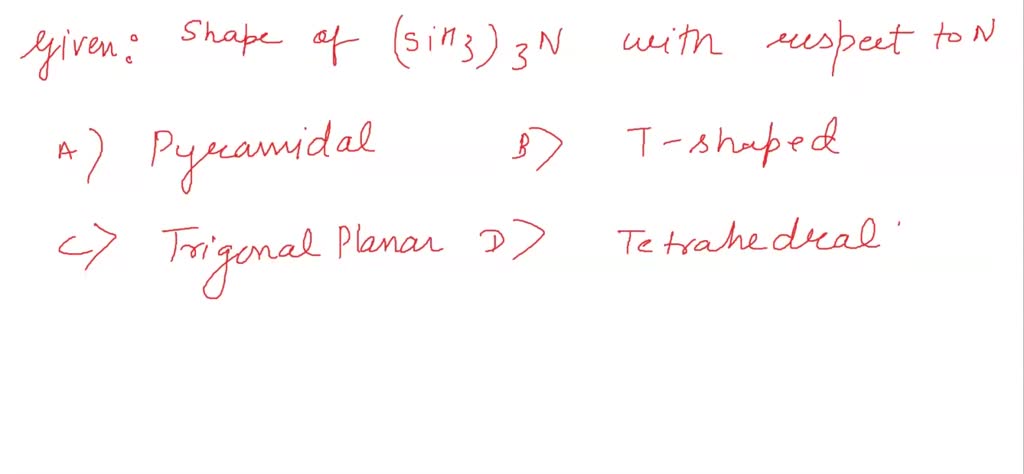 Given: Shape of (SiH3)3N with respect to N
A) Pyramidal B) T-shaped
C) Trigonal Planar D) Tetrahedral